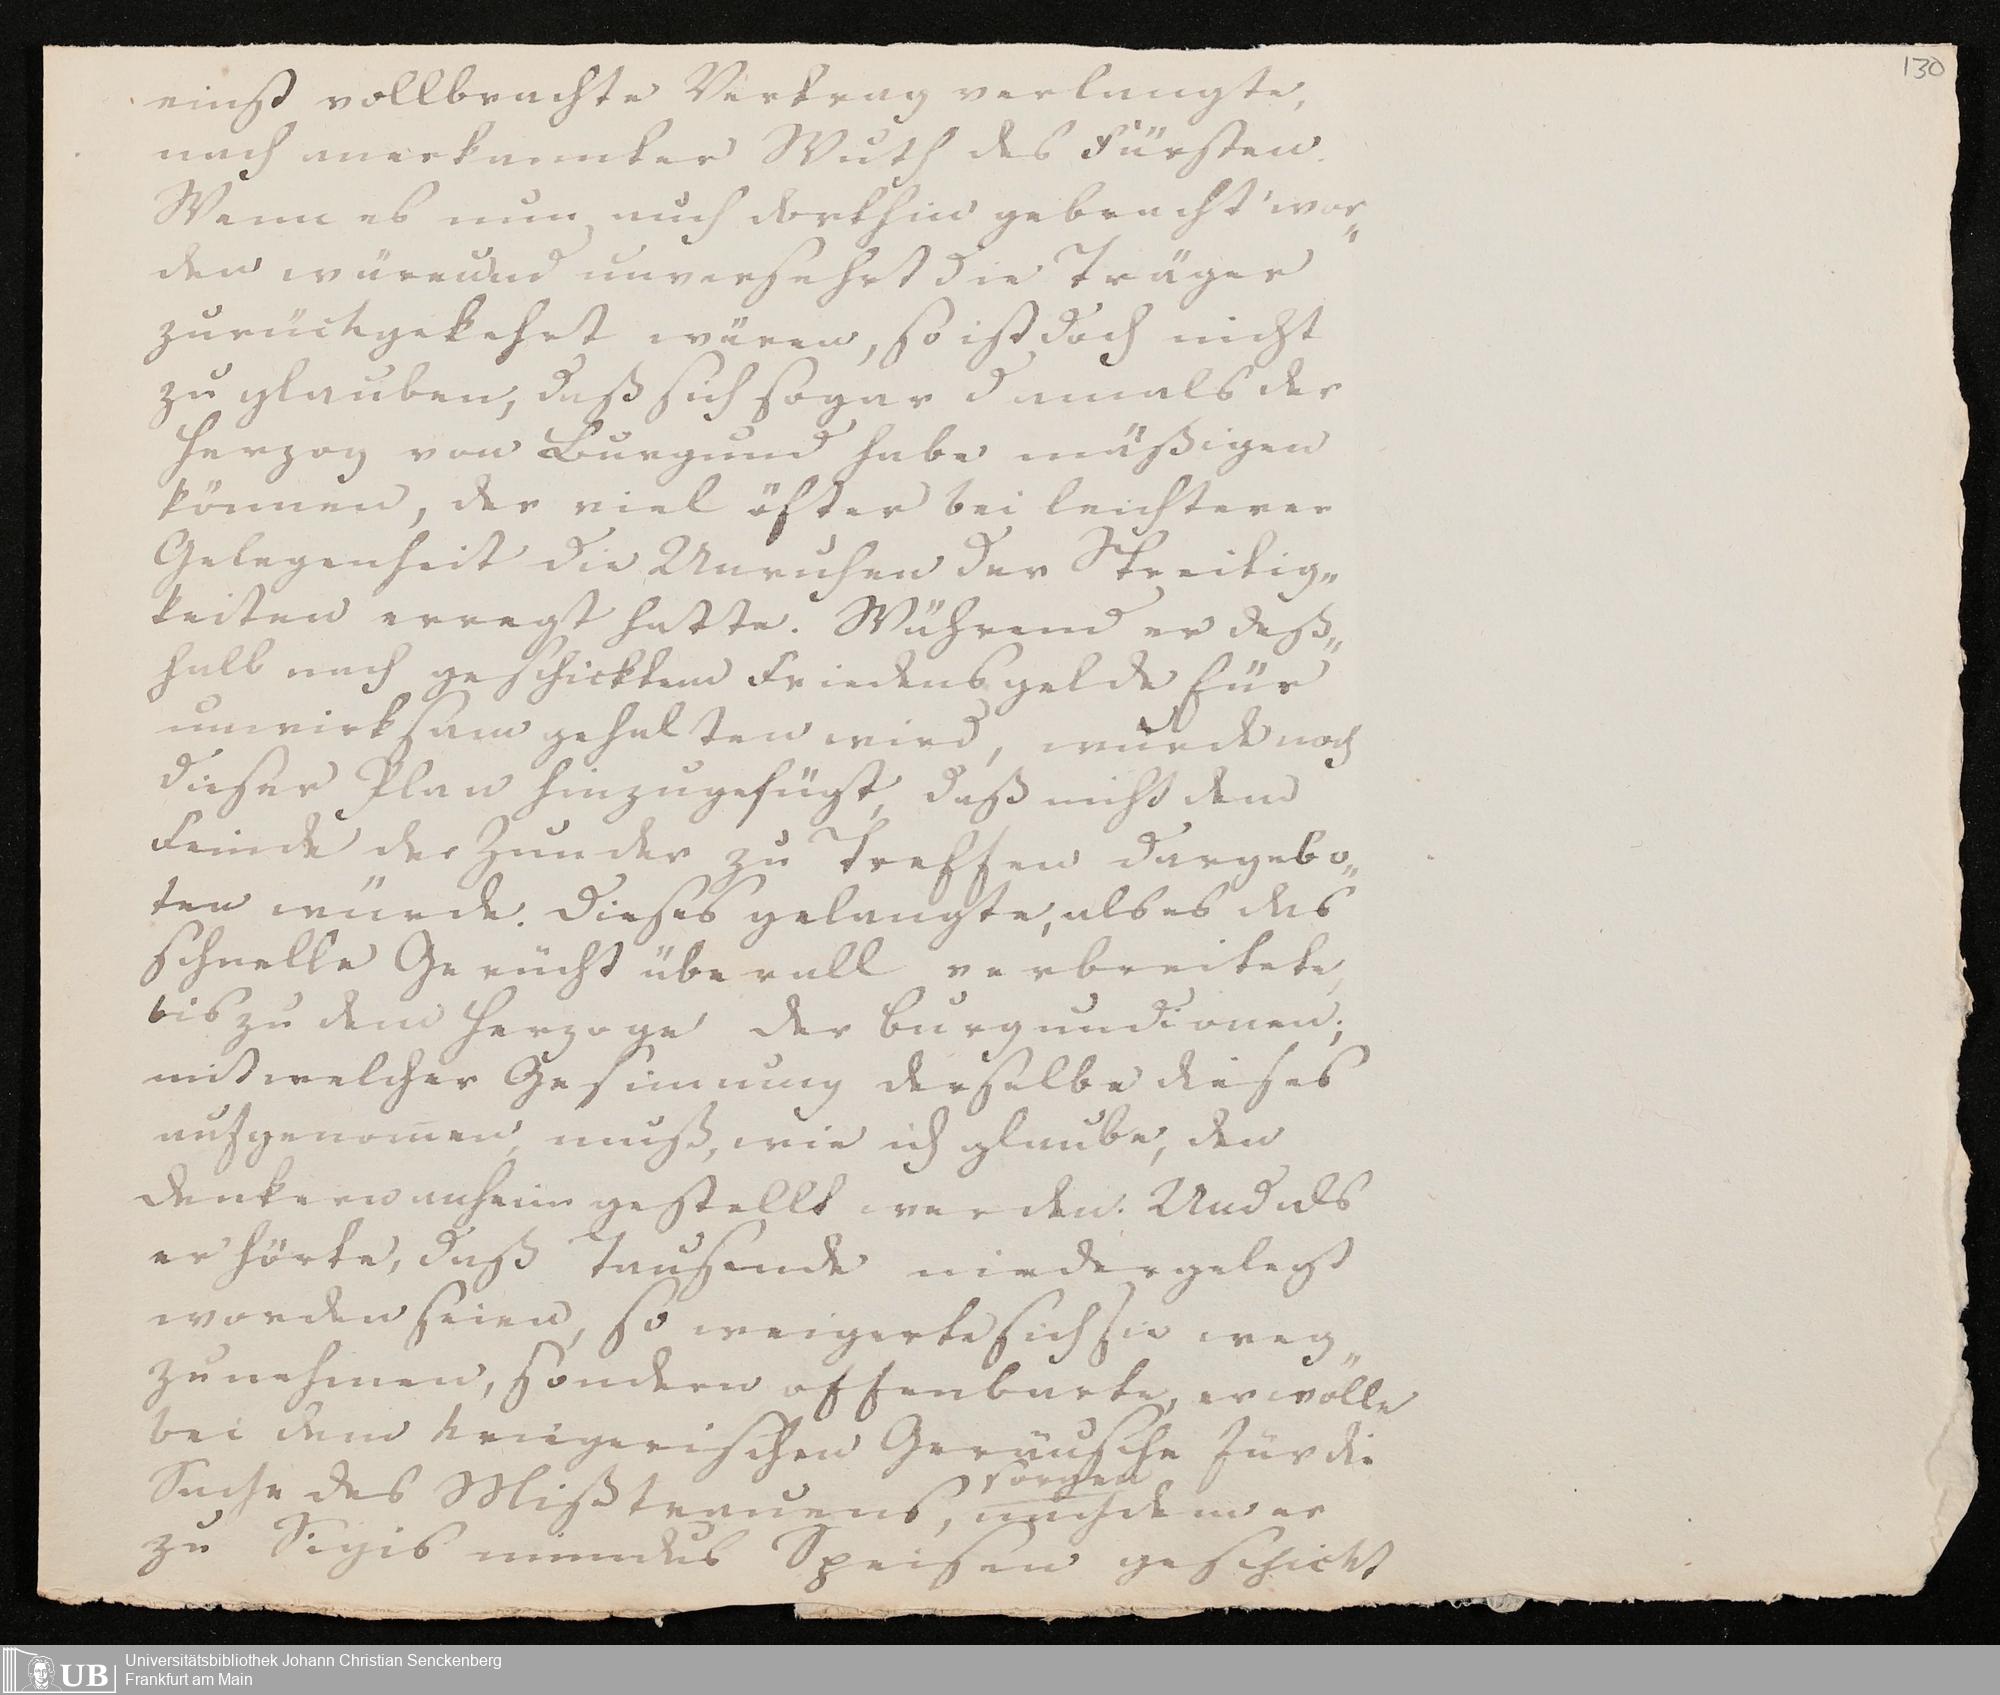 130
einst vollbrachte Vertrag verlangte,
nach anerkannter Wuth des Fürsten.
Wenn es nun auch dorthin gebracht wor„
den wäre und unversehrt die Träger
zurückgekehrt wären, so ist doch nicht
zu glauben, daß sich sogar damals der
Herzog von Burgund habe mäßigen
können, der viel öfter bei leichterer
Gelegenheit die Unruhen der Streitig„
keiten erregt hatte. Während er deß„
halb nach geschicktem Friedensgelde für
unwirksam gehalten wird, wurde noch
dieser Plan hinzugefügt, daß nicht dem
Feinde der Zunder zu Treffen dargebo„
ten würde. Dieses gelangte, als es das
schnelle Gerücht überall verbreitete,
bis zu dem Herzoge der Burgundionen;
mit welcher Gesinnung derselbe dieses
aufgenomen, muß, wie ich glaube, den
Denkern anheim gestellt werden. Und als
er hörte, daß Tausende niedergelegt
worden seien, so weigerte sich sie weg„
zunehmen, sondern offenbarte, er wolle
bei dem kriegerischen Geräusche für die
Sache des Mißtrauens sorgen, nachdem er
zu Sigismundus Speisen geschickt
Universitätsbibliothek Johann Christian Senckenberg
Frankfurt am Main
UB